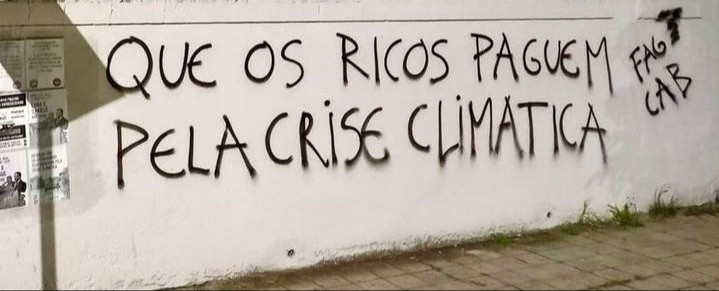 QUE OS RICOS PAGUEM
PELA CRISE CLIMÁTICA
FAG
CAB